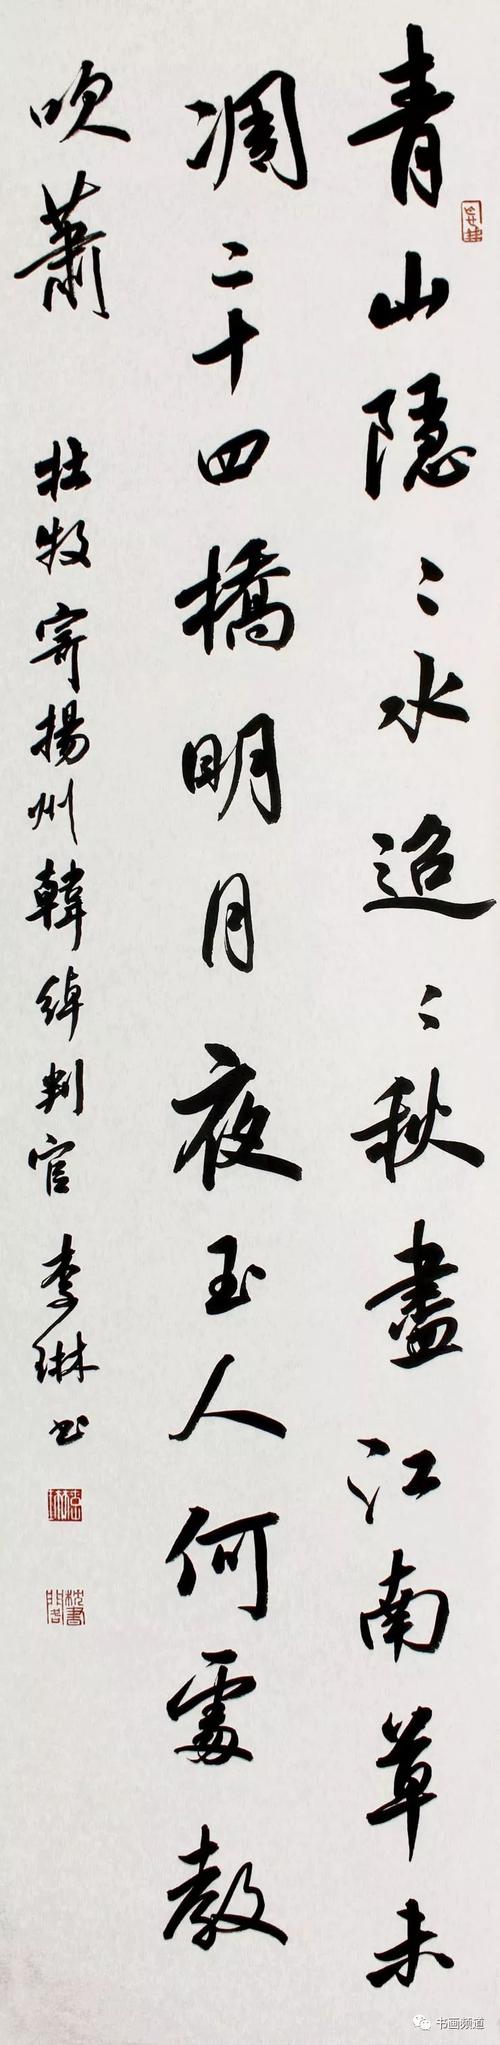 青山隱〻水迢〻秋盡江南草未
凋二十四橋明月夜玉人何處教
吹蕭 杜牧寄揚州韓綽判官 李琳书
书画频道